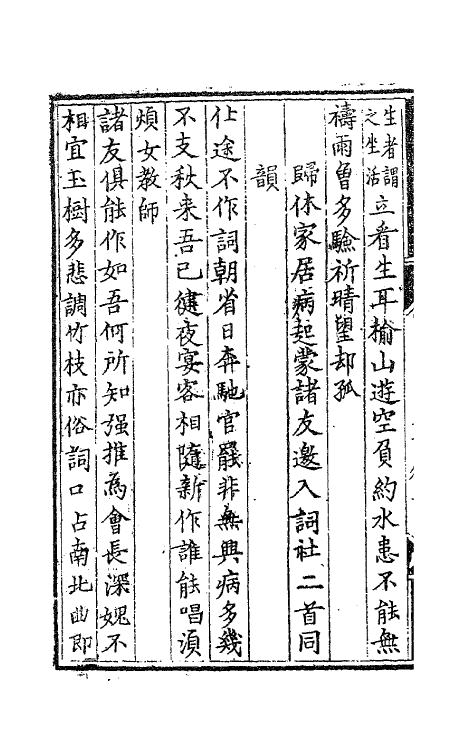 生者謂之坐活立看生耳楡山遊空負約水患不能無
禱雨曽多驗祈晴望却孤
歸休家居病起蒙諸友邀入詞社二首同
韻
仕途不作詞朝省日奔馳官罷非無興病多幾
不支秋来吾已健夜宴客相隨新作誰能唱湏
煩女教師
諸友俱能作如吾何所知强推為會長深媿不
相宜玉樹多悲調竹枝亦俗詞口占南北曲即